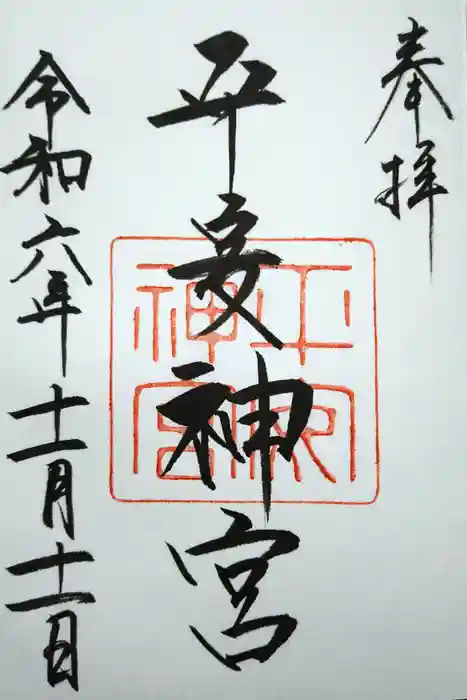 奉拝
平安神宮
令和六年十一月十一日
神宮